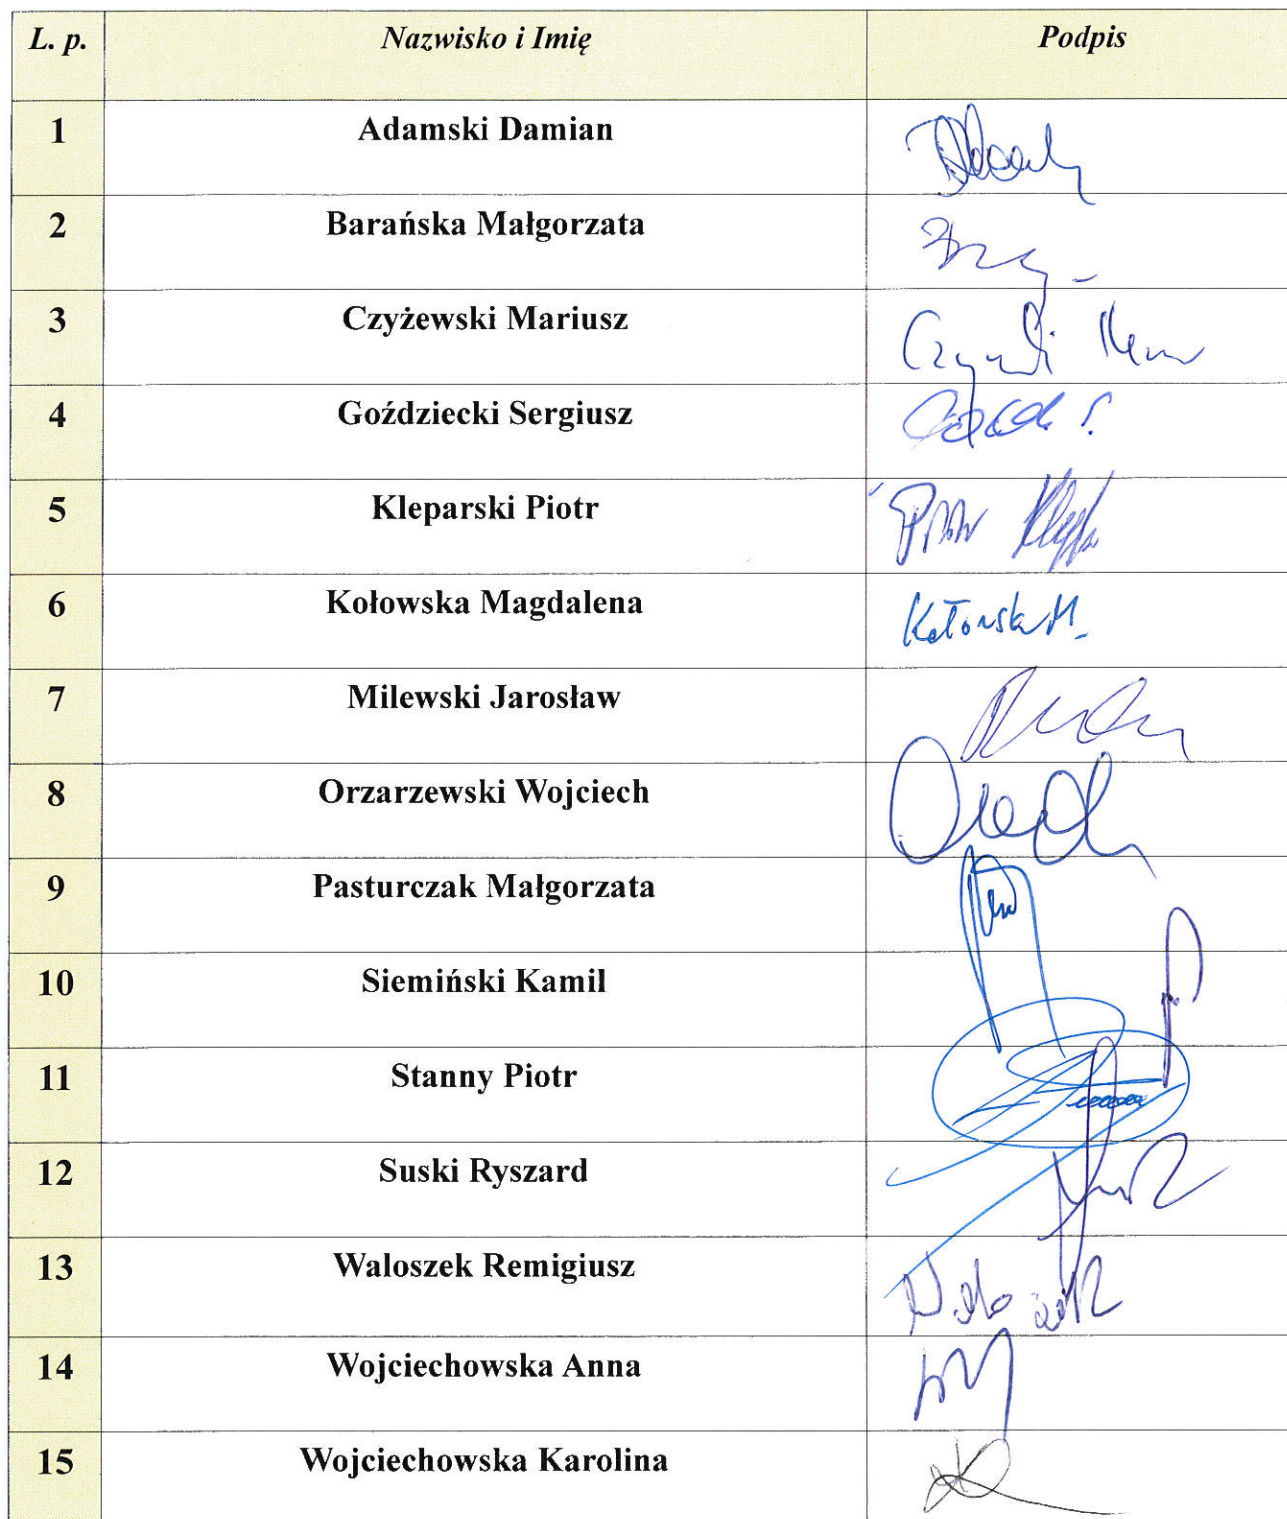 L. p. Nazwisko i Imię Podpis
1 Adamski Damian
2 Barańska Małgorzata
3 Czyżewski Mariusz
4 Goździecki Sergiusz
5 Kleparski Piotr
6 Kołowska Magdalena Kołowska M.
7 Milewski Jarosław
8 Orzarzewski Wojciech
9 Pasturczak Małgorzata
10 Siemiński Kamil
11 Stanny Piotr
12 Suski Ryszard
13 Waloszek Remigiusz
14 Wojciechowska Anna
15 Wojciechowska Karolina